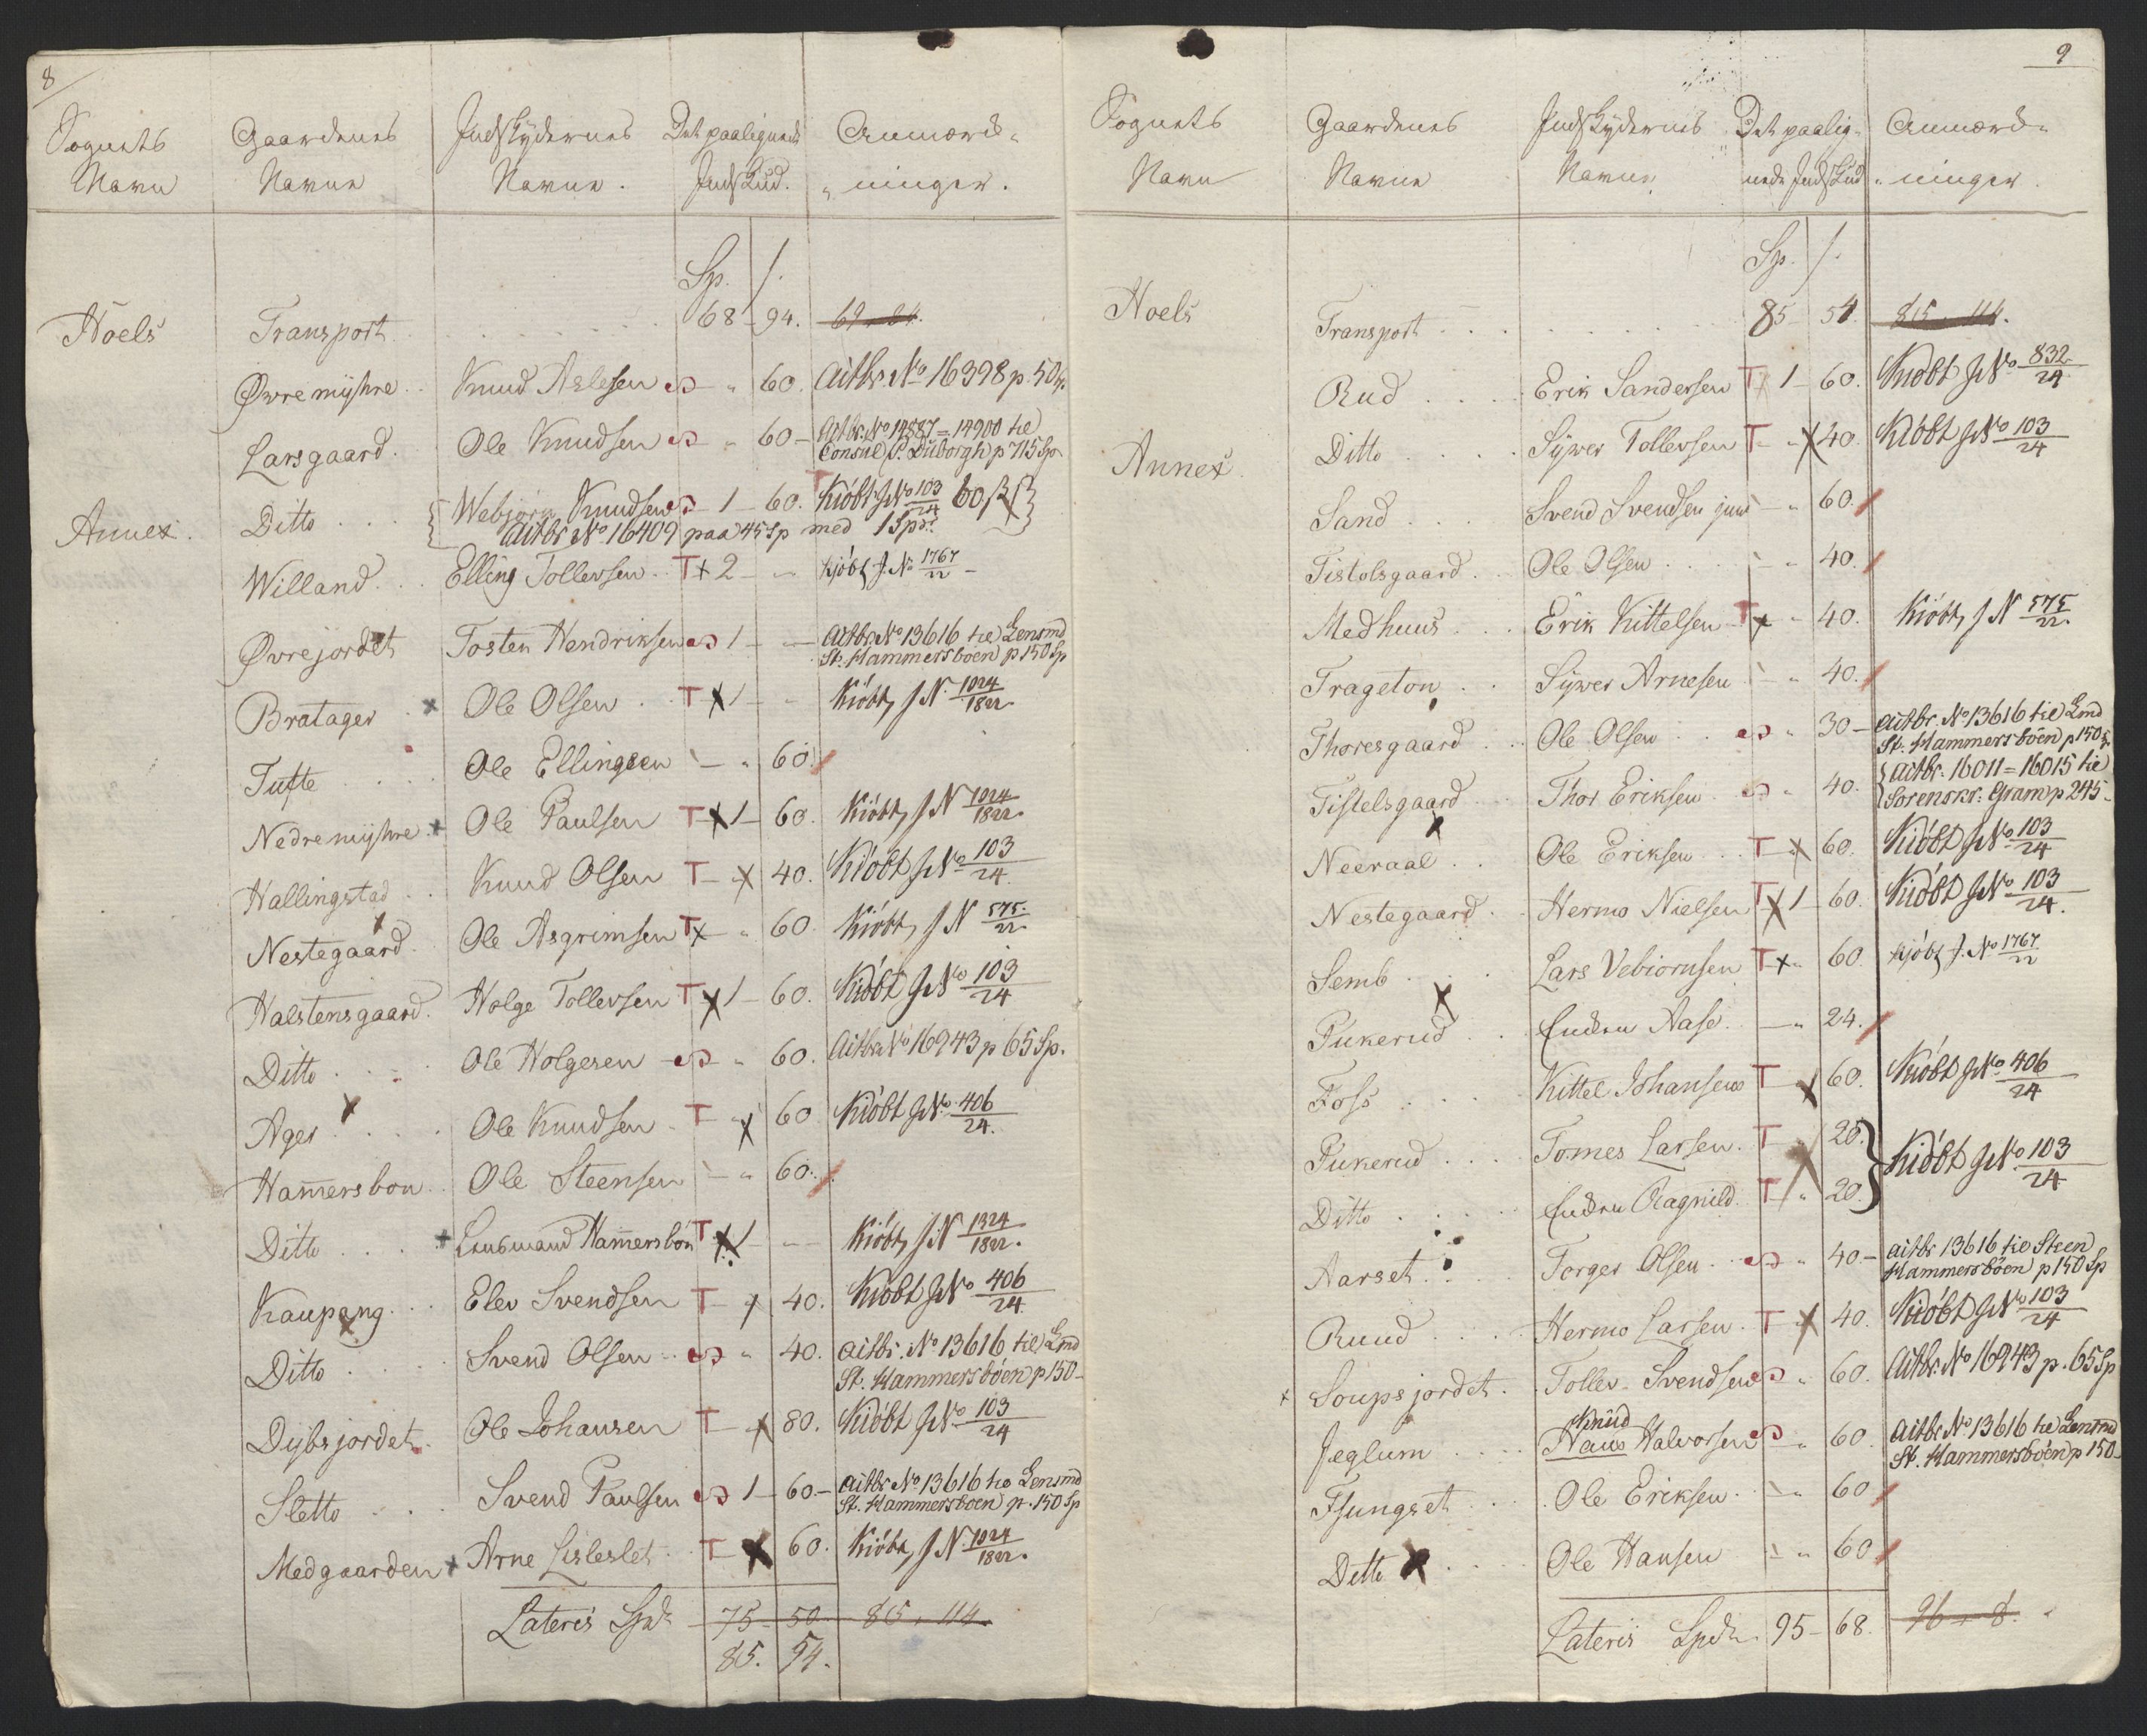 8
Sognets Gaardenes Indskydernes Det paalignede Anmærk-
Navn Navne Navne. Indskud. ninger.
Sp. /.
Noels Transport 68 - 94. 69 - 24.
Øvre myhre Knud Aslesen " 60. Actbr. No 16398 p. 50 Sp.
Larsgaard. Ole Knudsen " 60 - Actbr. No 14887=14900 til
Consul P. Duborgh p 715 Sp.
Annex. Ditto Webjørn Knudsen 1 - 60. Kiöbt J No 103/24 60 β
Actbr No 16409 paa 45 Sp med 1 Spd.
Willand Elling Tollevsen T x 2 - " kjöbt J. No 1767/22 -
Øvre jordet Tosten Hendriksen 1 - " Actbr. No 13616 til Lensmd
St. Hammersböen p 150 Sp
Bratager x Ole Olsen T x 1 - " Kiöbt, J N. 1024/1822.
Tufte Ole Ellingsen " 60.
Nedre myhre x Ole Paulsen T x 1 - 60. Kiöbt, J N 1024/1822.
Hallingstad Knud Olsen T x 40. Kiöbt J No 103/24.
Nestegaard Ole Asgrimsen T x " 60. Kiöbt, J N 575/22.
Halstensgaard. Holge Tollevsen T x 1 - 60. Kiöbt J No 103/24
Ditto Ole Holgesen " 60. Actbr No 16943 p 65 Sp.
Ager Ole Knudsen T x 60 Kiöbt J No 406/24.
Hammersbon Ole Steensen " 60.
Ditto x Lensmand Hammersbön T x 1 - " Kiöbt, J. N 1324/1822.
Kaupang Elev Svendsen T x 40. Kiöbt J No 406/24.
Ditto Svend Olsen " 40. Actbr. No 13616 til Lmd
St. Hammersböen p 150 -
Dybsjordet. Ole Johansen T x 80. Kiöbt J No 103/24
Sletto Svend Paulsen 1 - 60 - Actbr No 13616 til Lensmd
St. Hammersböen p. 150 Sp
Medgaarden x Arne Lisleslet T x 60. Kiöbt, J N. 1024/1822.
Lateris Spd 75 - 50 85 , 114
85. 54.
9
Sognets Gaardenes Indskydernes Det paalig- Anmærk-
Navn Navne Navne nede Indskud ninger.
Sp. /.
Noels Transport 85 - 54. 85 . 114.
Rud Erik Sandersen T 1 - 60. Kiöbt J No 832/24
Ditto Sÿwer Tollevsen T x 40. Kiöbt J No 103/24
Annex. Sand Svend Svendsen jun " 60.
Tistolsgaard Ole Olsen " 40.
Medhuus Erik Kittelsen T x " 40. Kiöbt, J N 575/22.
Trageton Sÿwer Arnesen " 40.
Thoresgaard Ole Olsen " 30 - Actbr. No 13616 til Lmd
St. Hammersböen p 150 Sp.
Tistelsgaard Thor Eriksen " 40. Actbr. 16011=16015 til
Sorenskr: Gram p 245 -
Neeraal Ole Eriksen T x 60. Kiöbt J No 103/24
Nestegaard Hermo Nielsen T x 1 - 60. Kiöbt J No 103/24.
Semb Lars Vebiornsen T x " 60. kjöbt J. No 1767/22
Pukerud Endru Aase " 24.
Foss Kittel Johansen T x 60. Kiöbt J No 406/24
Pukerud Tomes Larsen. T 20. Kiöbt J No 103/24
Ditto Endru Ragnild. T " 20.
Aarset Torger Olsen " 40 - Actbr 13616 til Steen
Hammersböen p 150 Sp
Ruud Hermo Larsen T x 40. Kiöbt J No 103/24
x Soupsjordet. Tollev Svendsen " 60. Actbr. No 16943 p. 65 Sp
Knud
Jeglum Hans Halvorsen " 60. Actbr No 13616 til Lensmd
St. Hammersböen p 150 -
Fjungset Ole Eriksen " 60
Ditto x Ole Hansen " 60
Lateris Spd 95 - 68. 96 - 8.